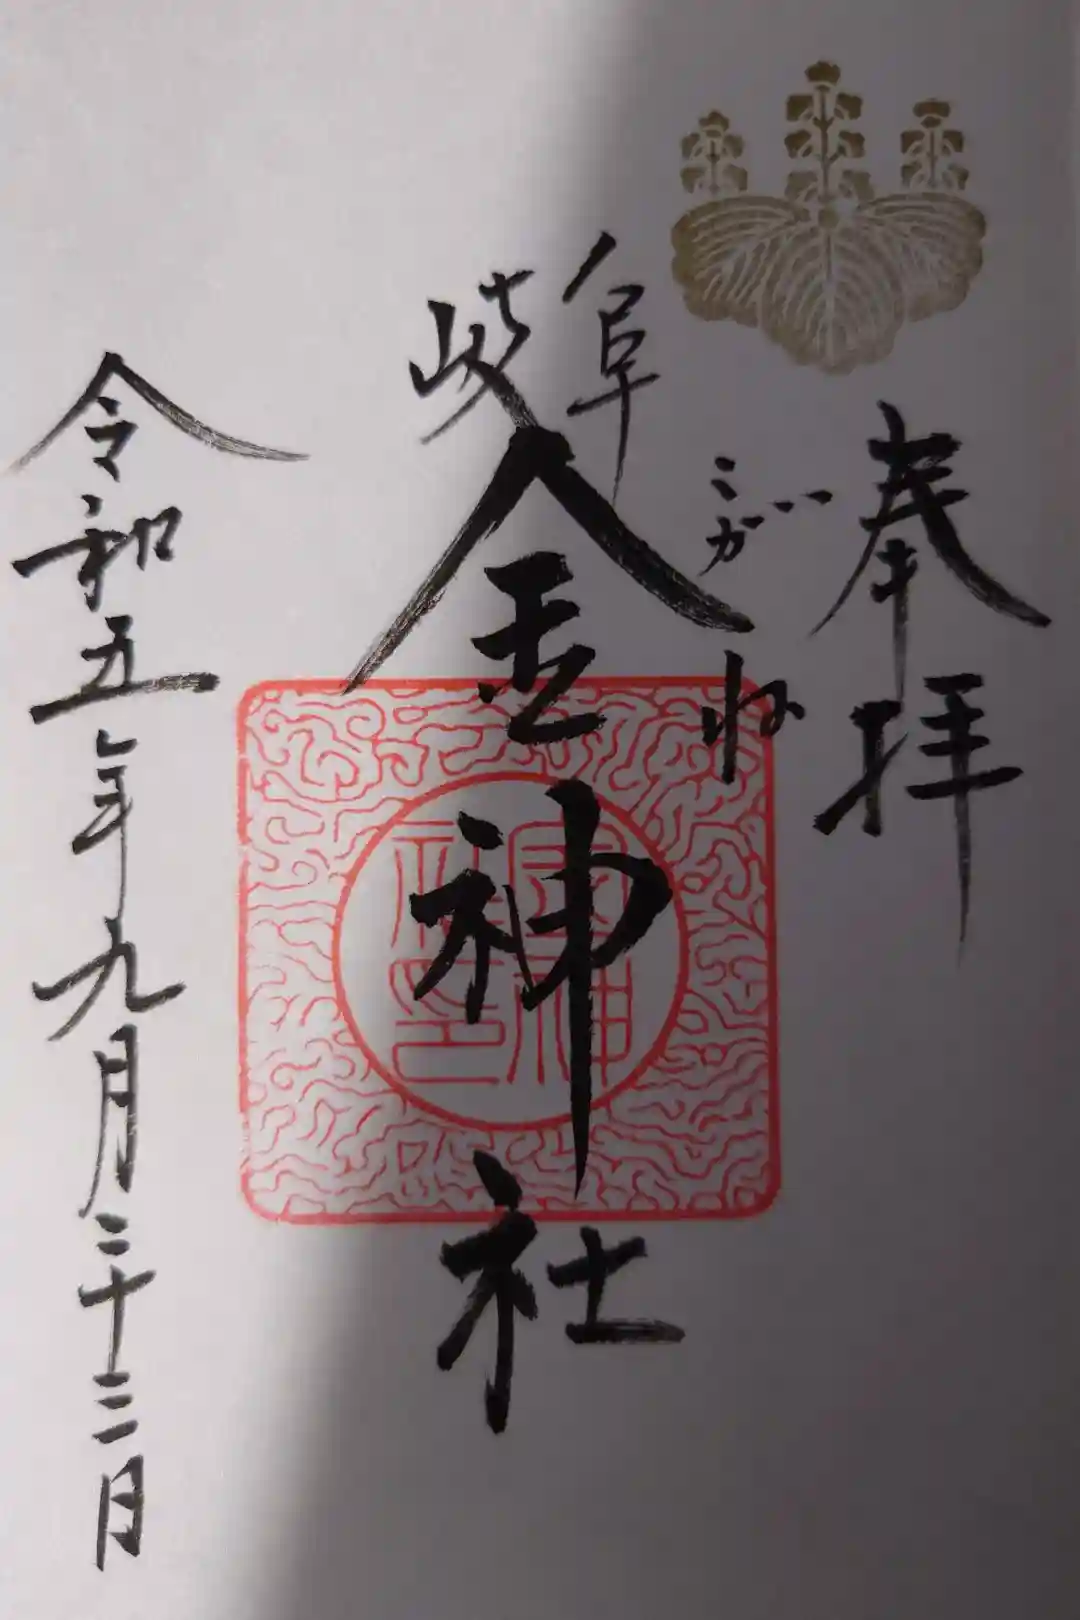 奉拝
岐阜
こがね
金神社
令和五年九月二十三日